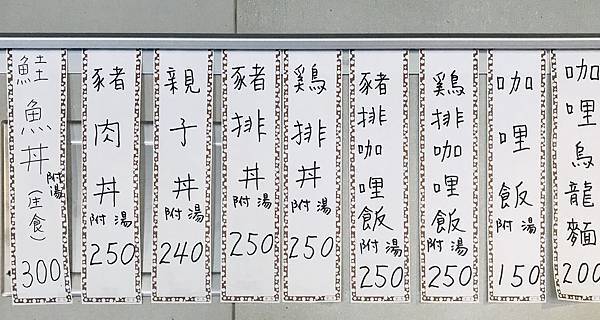 鮭魚丼(主食)附湯 300
豬肉丼附湯 250
親子丼附湯 240
豬排丼附湯 250
鷄排丼附湯 250
豬排咖哩飯附湯 250
鷄排咖哩飯附湯 250
咖哩飯附湯 150
咖哩烏龍麵 200